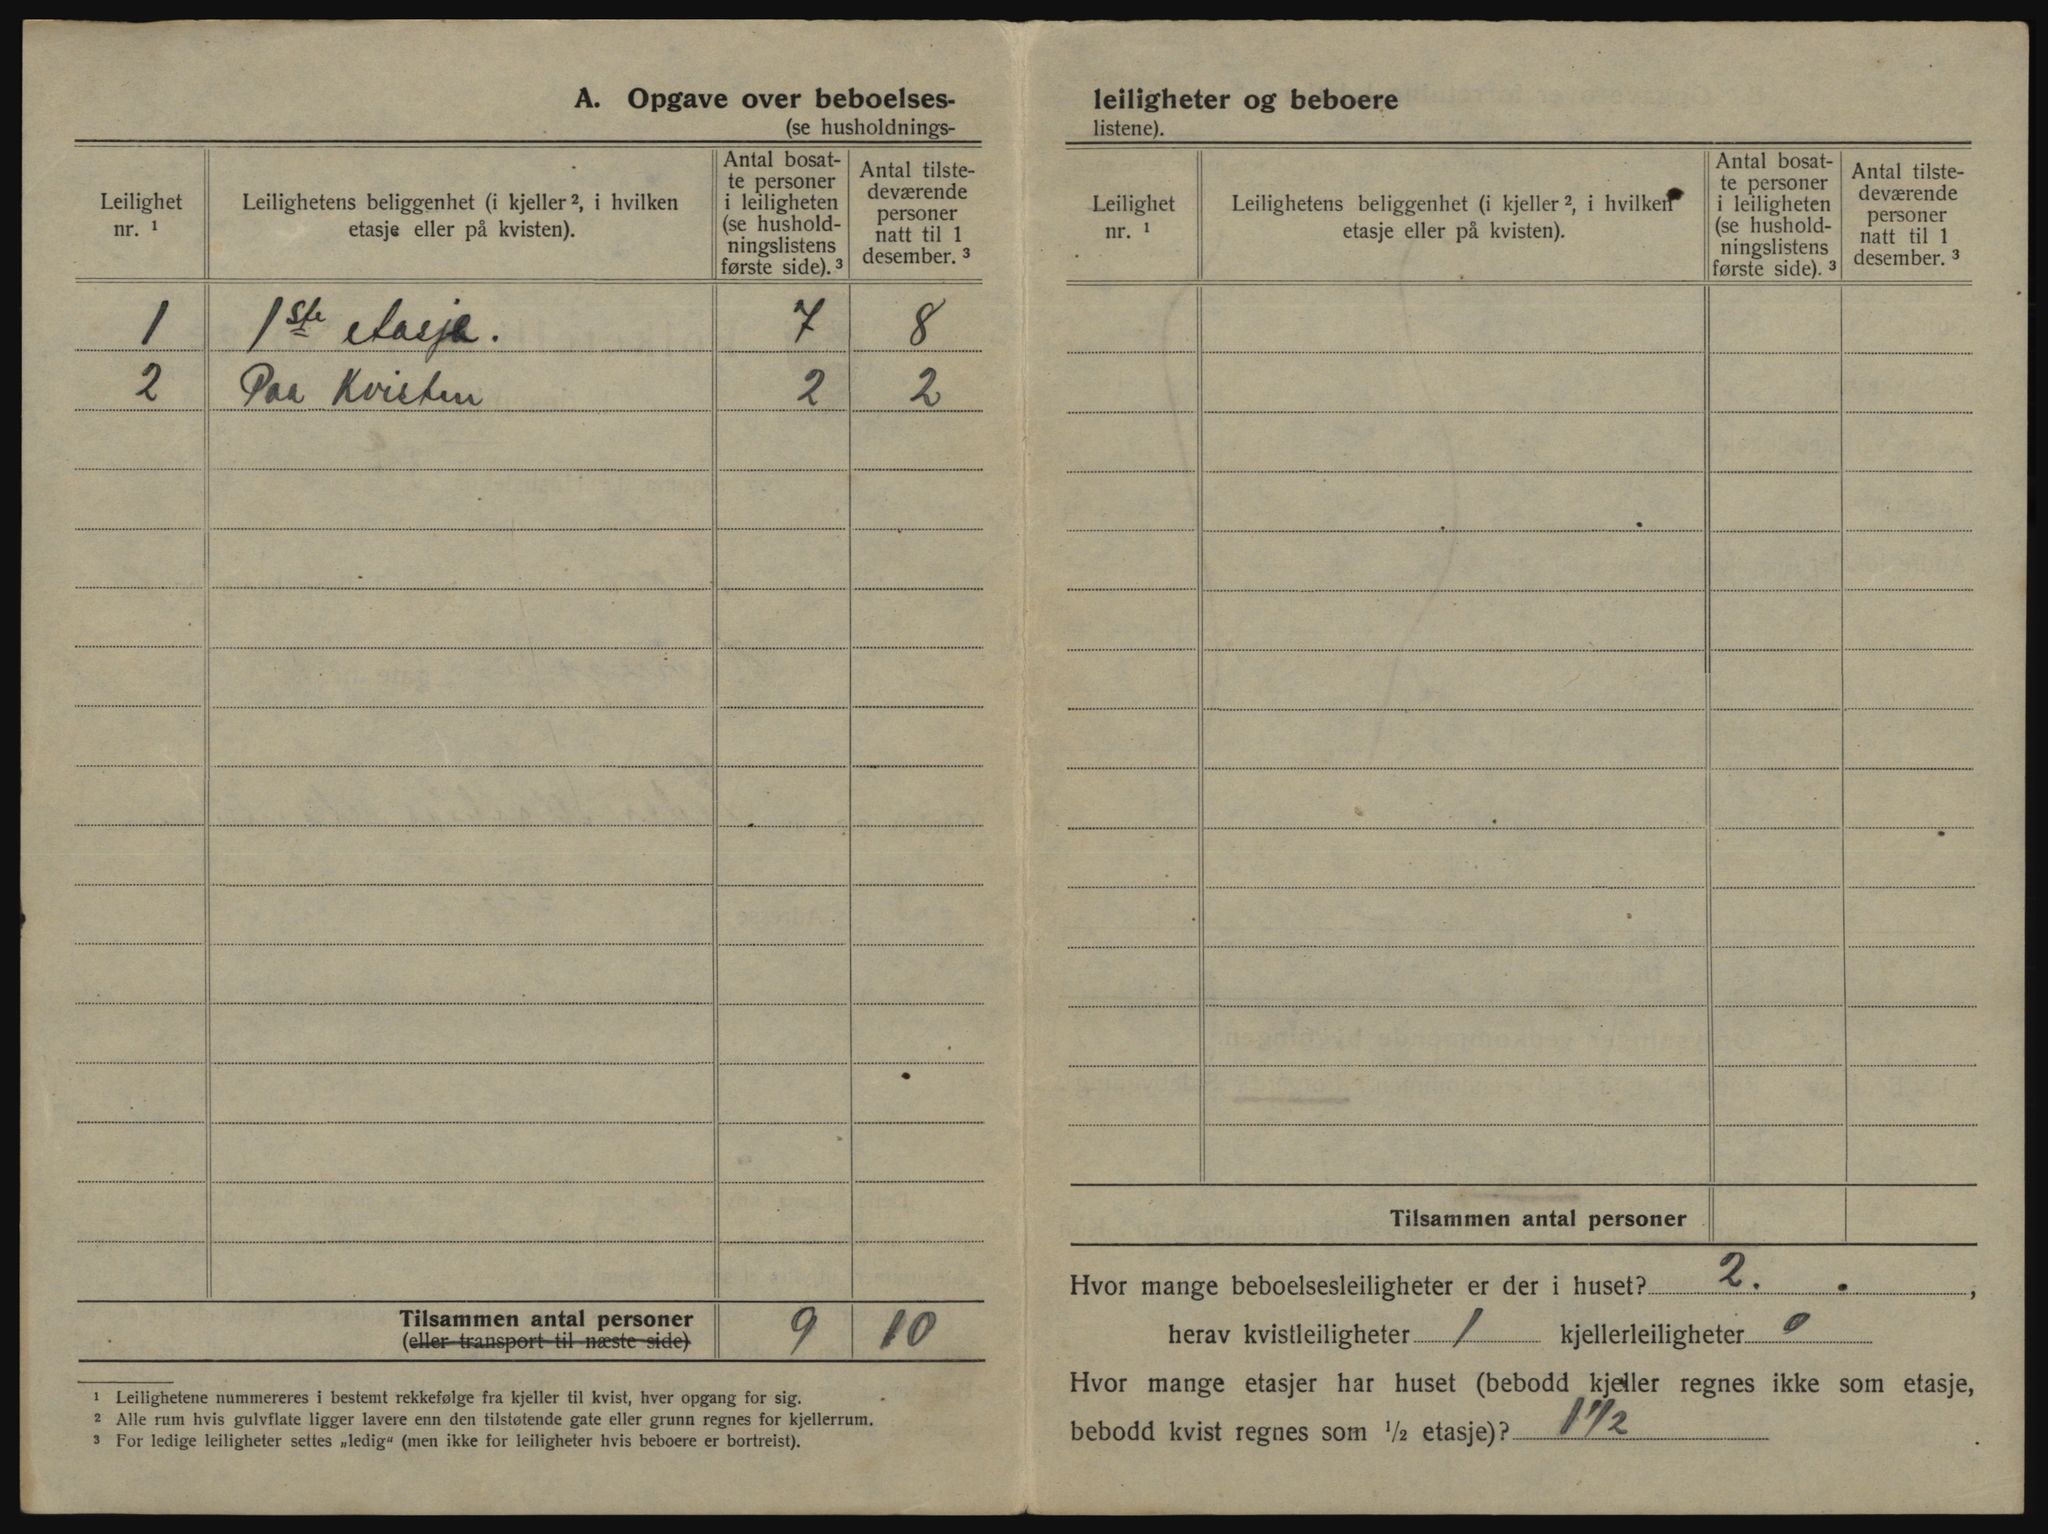 A. Opgave over beboelses-
(se husholdnings-
Leilighet
nr. ¹
Leilighetens beliggenhet (i kjeller ², i hvilken
etasje eller på kvisten).
Antal bosat-
te personer
i leiligheten
(se hushold-
ningslistens
første side). ³
Antal tilste-
deværende
personer
natt til 1
desember. ³
1 1ste etasje. 7 8
2 Paa Kvisten 2 2
Tilsammen antal personer 9 10
(eller transport til næste side)
¹ Leilighetene nummereres i bestemt rekkefølge fra kjeller til kvist, hver opgang for sig.
² Alle rum hvis gulvflate ligger lavere enn den tilstøtende gate eller grunn regnes for kjellerrum.
³ For ledige leiligheter settes „ledig“ (men ikke for leiligheter hvis beboere er bortreist).
leiligheter og beboere
listene).
Leilighet
nr. ¹
Leilighetens beliggenhet (i kjeller ², i hvilken
etasje eller på kvisten).
Antal bosat-
te personer
i leiligheten
(se hushold-
ningslistens
første side). ³
Antal tilste-
deværende
personer
natt til 1
desember. ³
Tilsammen antal personer
Hvor mange beboelsesleiligheter er der i huset? 2. ,
herav kvistleiligheter 1 kjellerleiligheter 0
Hvor mange etasjer har huset (bebodd kjeller regnes ikke som etasje,
bebodd kvist regnes som ½ etasje)? 1 1/2